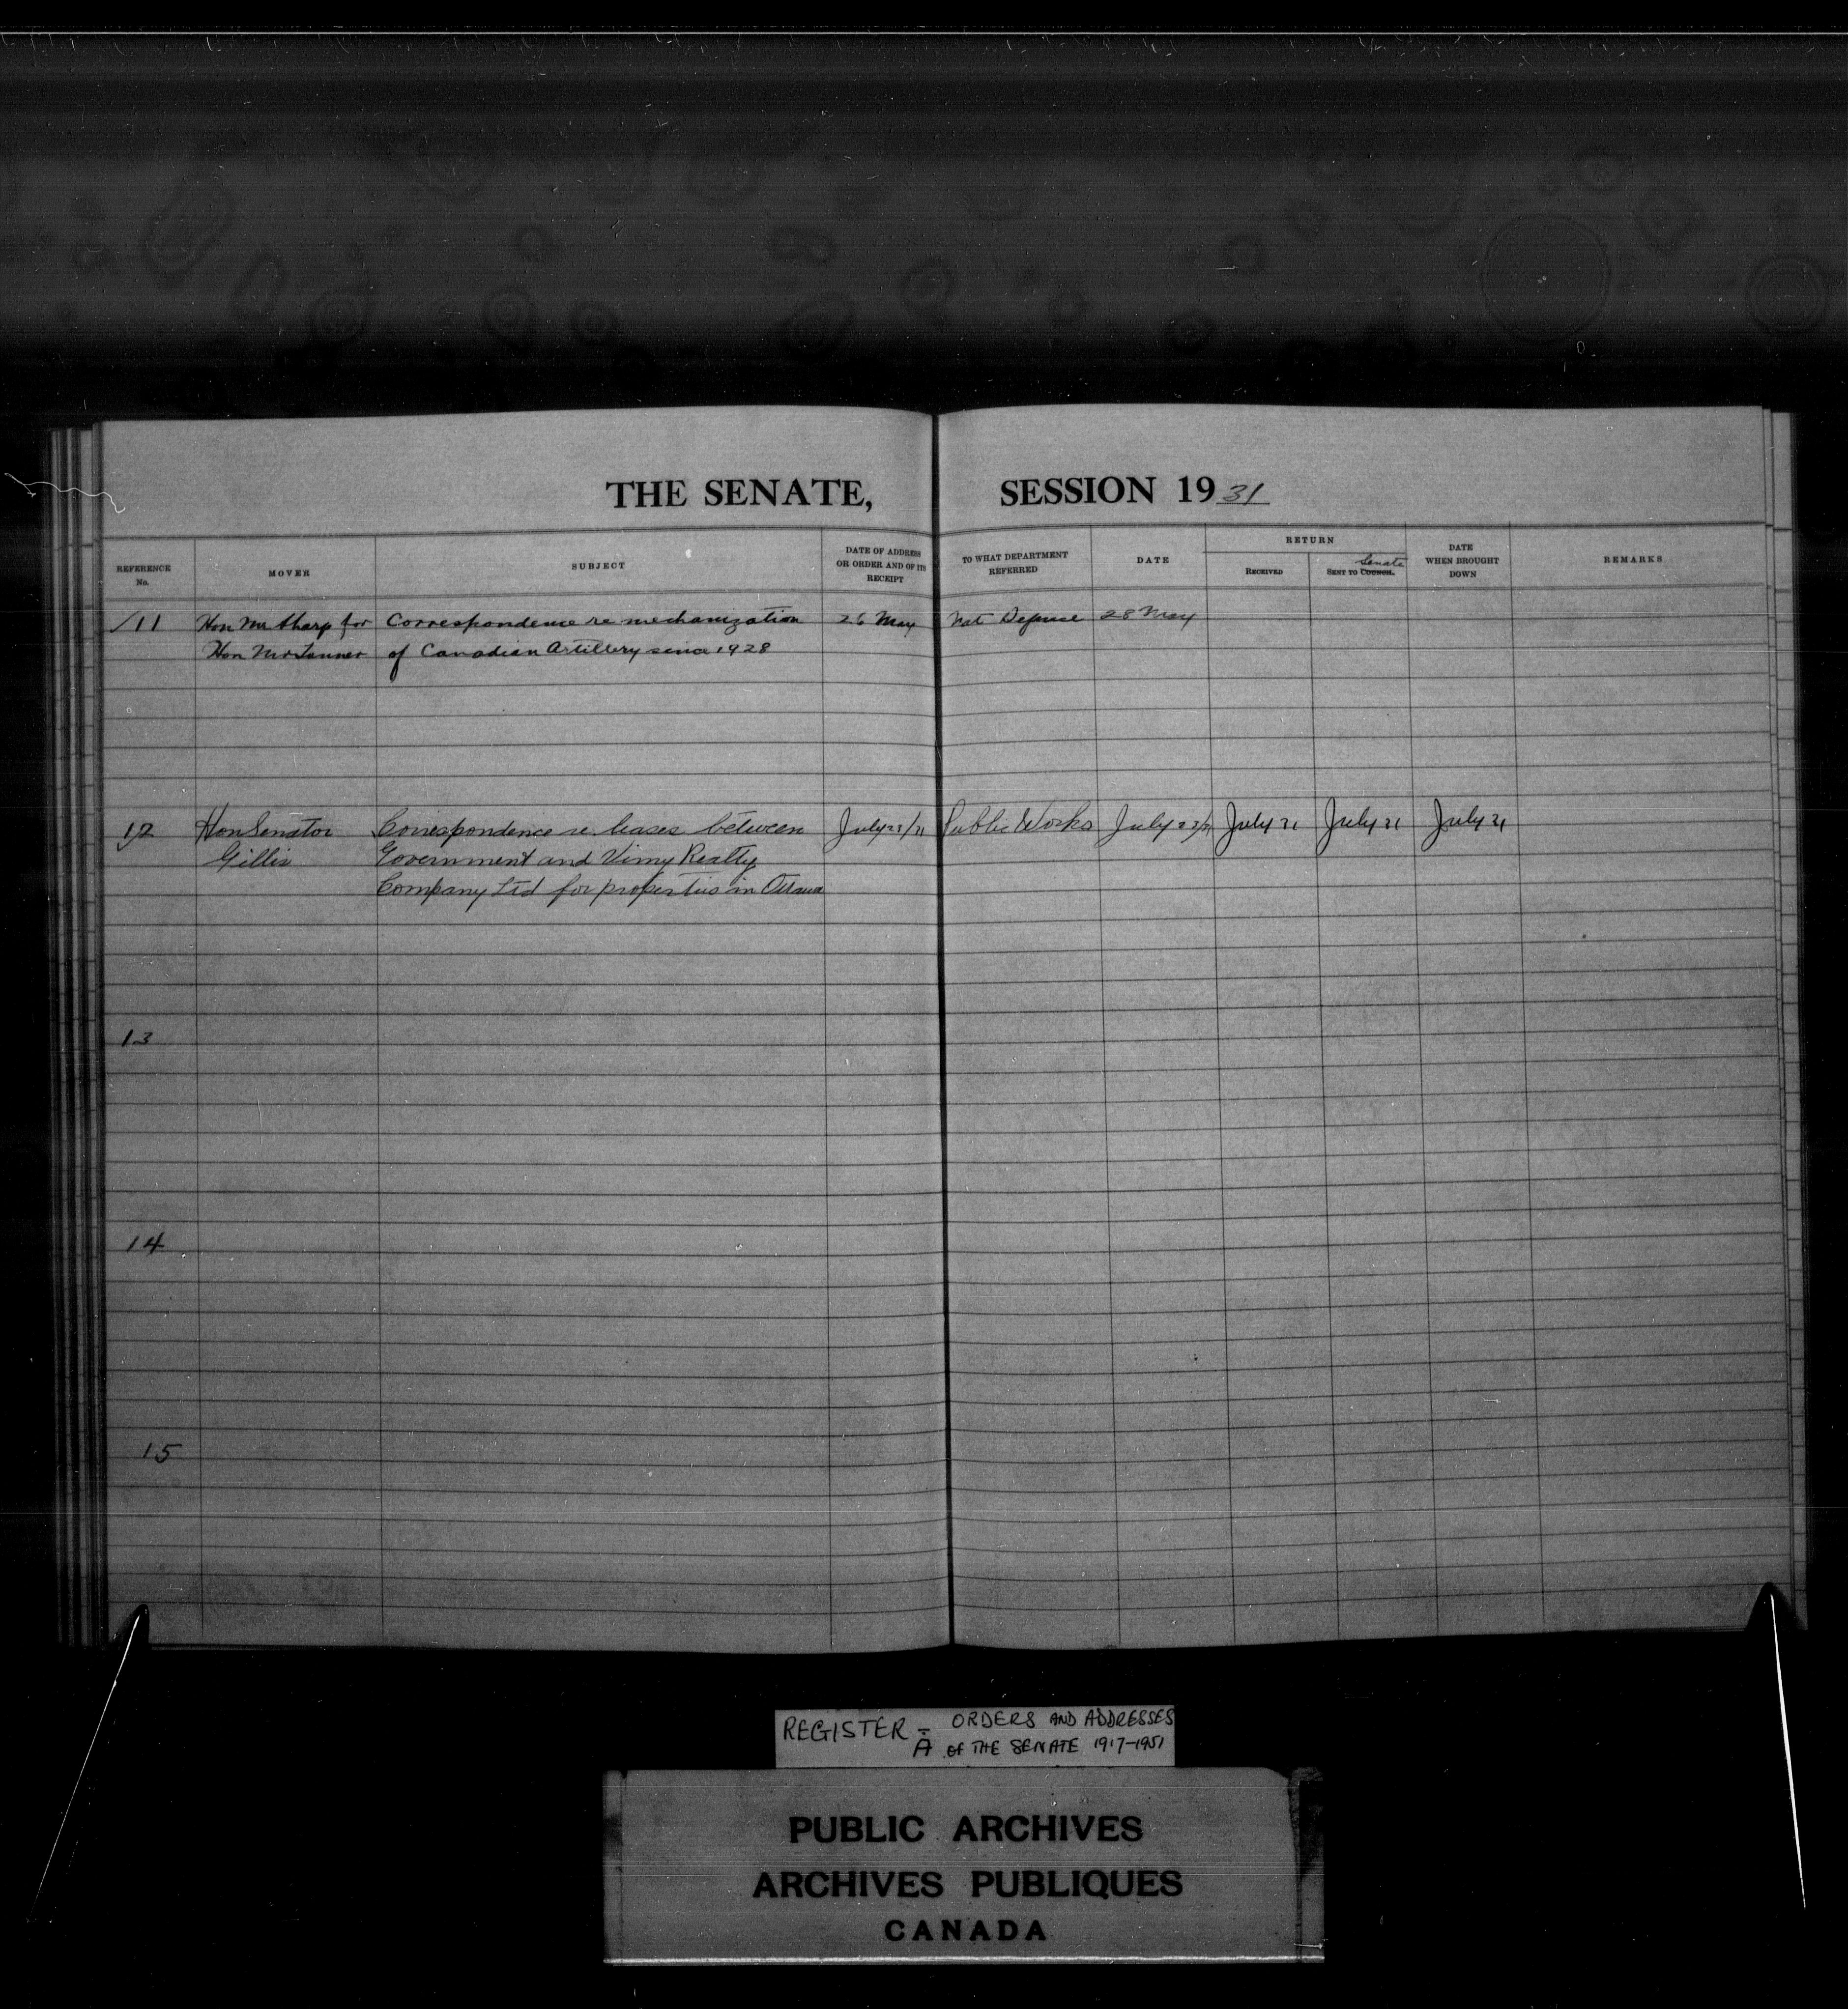 THE SENATE, SESSION 1931
REFERENCE No.
MOVER
SUBJECT
DATE OF ADDRESS OR ORDER AND OF ITS RECEIPT
TO WHAT DEPARTMENT REFERRED
DATE
RETURN
RECEIVED
SENT TO COUNCIL. Senate
DATE WHEN BROUGHT DOWN
REMARKS
11 Hon Mr Sharpe for Correspondence re mechanization 26 May Nat Defence 28 May
Hon Mr Tanner of Canadian Artillery since 1928
12 Hon Senator Correspondence re leases between July 23/31 Public Works July 23/31 July 31 July 31 July 31
Gillis Government and Vimy Realty
Company Ltd for properties in Ottawa
13
14
15
REGISTER - ORDERS AND ADDRESSES
A OF THE SENATE 1917-1951
PUBLIC ARCHIVES
ARCHIVES PUBLIQUES
CANADA